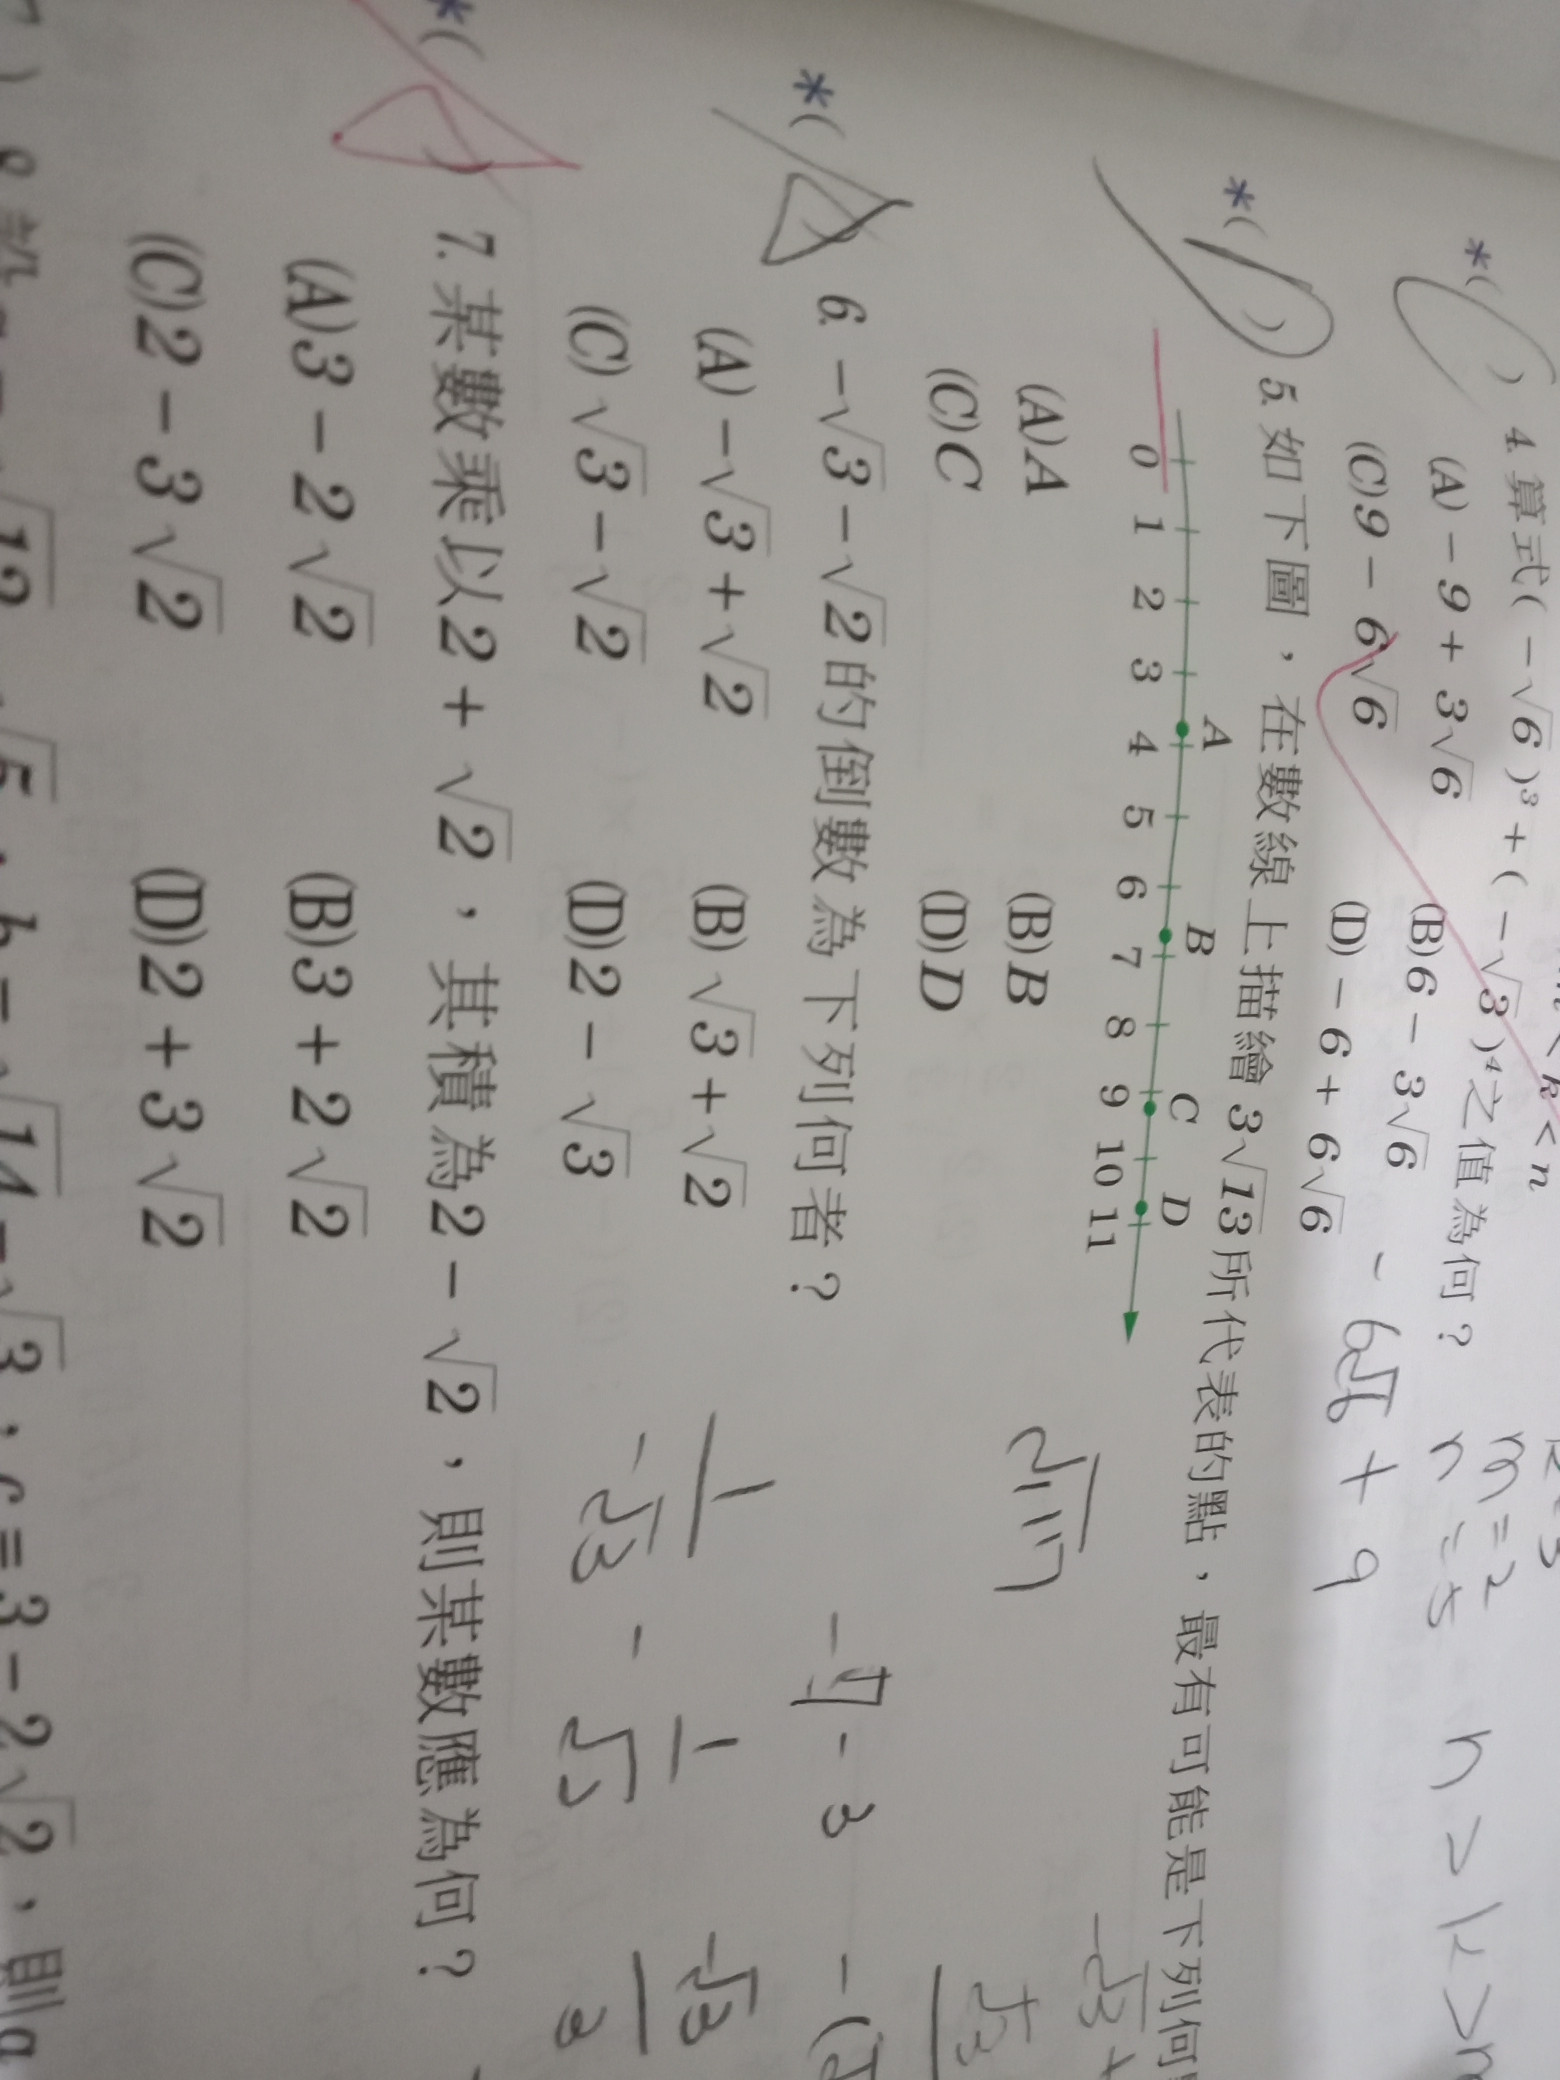 k < n
*( ) 4. 算式(-√6)³+(-√3)⁴之值為何？
(A)-9+3√6 (B)6-3√6
(C)9-6√6 (D)-6+6√6
-6√6+9
m=2
n=5
n>k>
*( ) 5. 如下圖，在數線上描繪3√13所代表的點，最有可能是下列何
A B C D
0 1 2 3 4 5 6 7 8 9 10 11
(A)A (B)B
(C)C (D)D
√117
*( ) 6. -√3-√2的倒數為下列何者？
(A)-√3+√2 (B)√3+√2
(C)√3-√2 (D)2-√3
*( ) 7. 某數乘以2+√2，其積為2-√2，則某數應為何？
(A)3-2√2 (B)3+2√2
(C)2-3√2 (D)2+3√2
b=√14-√3，c=3-2√2，則a